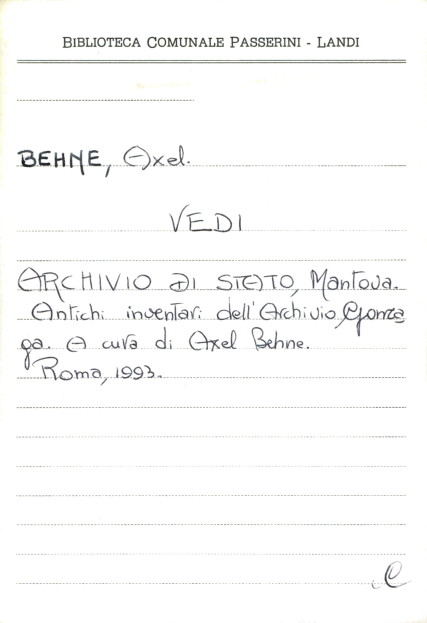 BIBLIOTECA COMUNALE PASSERINI - LANDI
BEHNE, Axel.
VEDI
ARCHIVIO DI STATO, Mantova.
Antichi inventari dell'Archivio Gonza
ga. A cura di Axel Behne.
Roma, 1993.